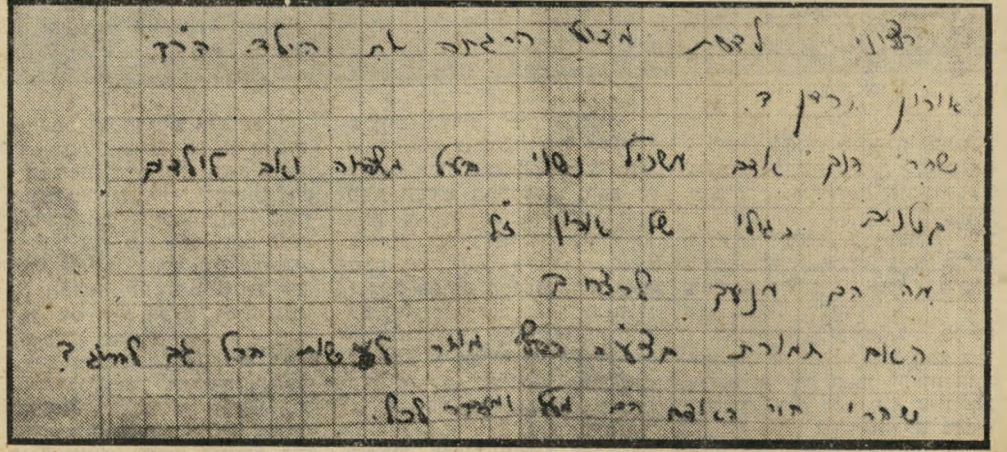 רצוני לדעת מדוע הרגת את הילד הרך
אורון ירדן ?
שהרי הנך אדם משכיל נשוי בעל משפחה ואב לילדים
קטנים בגילו של אורון ז"ל
מה הם מנעך לרצח ?
האם תמורת בצע כסף מותר לעשות הכל גם להרוג ?
שהרי חיי האדם הם מעל ומעבר לכל.